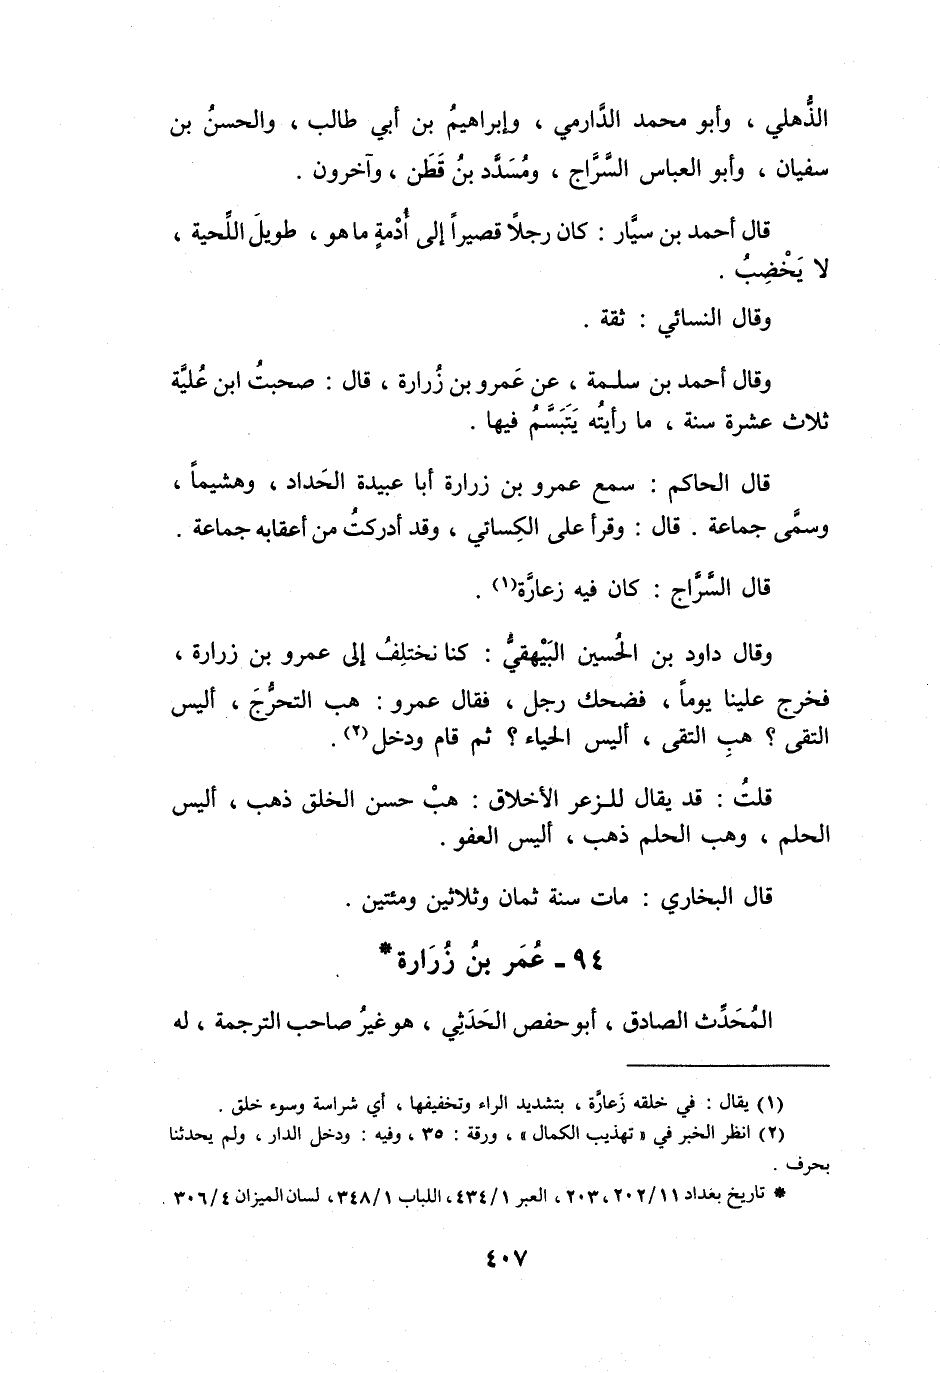 الذُّهلي ، وأبو محمد الدَّارمي ، وإبراهيمُ بن أبي طالب ، والحسنُ بن
سفيان ، وأبو العباس السَّرَّاج ، ومُسَدَّد بنُ قَطَن ، وآخرون .
قال أحمد بن سيَّار : كان رجلاً قصيراً إلى أُدْمةٍ ما هو ، طويلَ اللِّحية ،
لا يَخْضِبُ .
وقال النسائي : ثقة .
وقال أحمد بن سلمة ، عن عَمرو بن زُرارة ، قال : صحبتُ ابن عُليَّة
ثلاث عشرة سنة ، ما رأيتُه يَتَبَسَّمُ فيها .
قال الحاكم : سمع عمرو بن زرارة أبا عبيدة الحَداد ، وهشيماً ،
وسمَّى جماعة . قال : وقرأ على الكِسائي ، وقد أدركتُ من أعقابه جماعة .
قال السَّرَّاج : كان فيه زعارَّة(١) .
وقال داود بن الحُسين البَيْهقيُّ : كنا نختلِفُ إلى عمرو بن زرارة ،
فخرج علينا يوماً ، فضحك رجل ، فقال عمرو : هب التحرُّجَ ، أليس
التقى ؟ هبِ التقى ، أليس الحياء ؟ ثم قام ودخل(٢) .
قلتُ : قد يقال للزعر الأخلاق : هبْ حسن الخلق ذهب ، أليس
الحلم ، وهب الحلم ذهب ، أليس العفو .
قال البخاري : مات سنة ثمان وثلاثين ومئتين .
٩٤ - عُمَر بنُ زُرَارة *
المُحَدِّث الصادق ، أبو حفص الحَدَثِي ، هو غيرُ صاحب الترجمة ، له
(١) يقال : في خلقه زَعارَّة ، بتشديد الراء وتخفيفها ، أي شراسة وسوء خلق .
(٢) انظر الخبر في « تهذيب الكمال » ، ورقة : ٣٥ ، وفيه : ودخل الدار ، ولم يحدثنا
بحرف .
* تاريخ بغداد ٢٠٢/١١ ، ٢٠٣ ، العبر ٤٣٤/١ ، اللباب ٣٤٨/١ ، لسان الميزان ٣٠٦/٤ .
٤٠٧